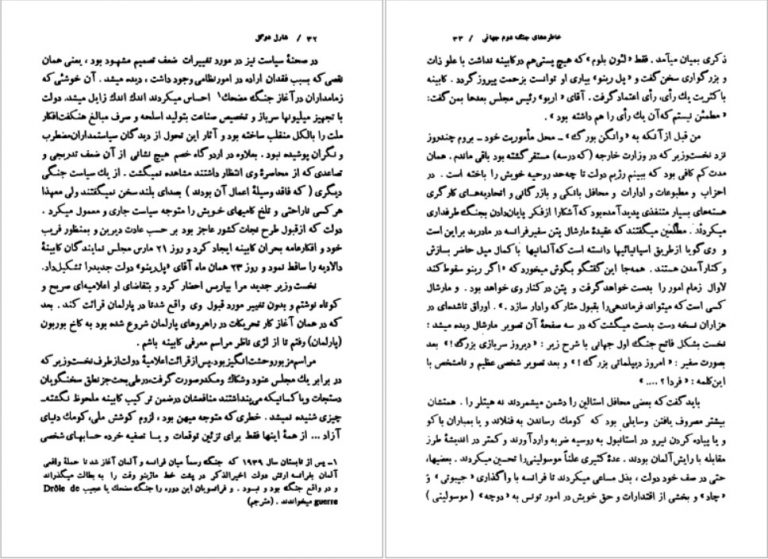 ۳۲ / شارل دوگل
در صحنهٔ سیاست نیز در مورد تغییرات ضعف تصمیم مشهود بود ، یعنی همان
نقصی که بسبب فقدان اراده در امورنظامی وجود داشت ، دیده میشد . آن خوشی که
زمامداران در آغاز جنگ مضحك۱ احساس میکردند اندك اندك زایل میشد. دولت
با تجهیز میلیونها سرباز و تخصیص صنعت بتولید اسلحه و صرف مبالغ هنگفت افکار
ملت را بالکل منقلب ساخته بود و آثار این تحول از دیدگان سیاستمداران مضطرب
و نگران پوشیده نبود . بعلاوه در اردوگاه خصم هیچ نشانی از آن ضعف تدریجی و
تصاعدی که از محاصرهٔ وی انتظار داشتند مشاهده نمیگشت . از یك سیاست جنگی
دیگری ( که فاقد وسیلهٔ اعمال آن بودند ) بصدای بلند سخن نمیگفتند ولی معهذا
هر کسی ناراحتی و تلخ کامیهای خویش را متوجه سیاست جاری و معمول میکرد .
دولت که از قبول طرح نجات کشور عاجز بود بر حسب عادت دیرین و بمنظور فریب
خود و افکار عامه بحران کابینه ایجاد کرد و روز ۲۱ مارس مجلس نمایندگان کابینهٔ
دالادیه را ساقط نمود و روز ۲۳ همان ماه آقای «پل رینو» دولت جدید را تشکیل داد.
نخست وزیر جدید مرا بپاریس احضار کرد و بتقاضای او اعلامیه‌ای صریح و
کوتاه نوشتم و بدون تغییر مورد قبول وی واقع شد تا در پارلمان قرائت کند . بعد
که در همان آغاز کار تحریکات در راهروهای پارلمان شروع شده بود به کاخ بوربون
(پارلمان) رفتم تا از لژی ناظر مراسم معرفی کابینه باشم .
مراسم مزبور وحشت انگیز بود. پس از قرائت اعلامیهٔ دولت از طرف نخست وزیر که
در برابر یك مجلس عنود وشکاك ومکدر صورت گرفت در طی بحث جز نطق سخنگویان
دستجات و یا کسانیکه می‌پنداشتند منافعشان در ضمن ترکیب کابینه ملحوظ نگشته ـ
چیزی شنیده نمیشد . خطری که متوجه میهن بود ، لزوم کوشش ملی، کومك دنیای
آزاد ... از همهٔ اینها فقط برای تزئین توقعات و یا تصفیه خرده حسابهای شخصی
۱ـ پس از تابستان سال ۱۹۳۹ که جنگ رسماً میان فرانسه و آلمان آغاز شد تا حملهٔ واقعی
آلمان بفرانسه ارتش دولت اخیرالذکر در پشت خط ماژینو وقت را به بطالت میگذراند
و در واقع جنگ بود و نبود . و فرانسویان این دوره را جنگ مضحك یا عجیب Drôle de
guerre میخواندند . (مترجم)
خاطره‌های جنگ دوم جهانی / ۳۳
ذکری بمیان میآمد . فقط «لئون بلوم» که هیچ پستی هم در کابینه نداشت با علو ذات
و بزرگواری سخن گفت و «پل رینو» بیاری او توانست بزحمت پیروز گردد . کابینه
با کثریت یك رأی، رأی اعتماد گرفت . آقای « اریو» رئیس مجلس بعدها بمن گفت:
« مطمئن نیستم که آن یك رأی را هم داشته بود »
من قبل از آنکه به «وانگن بورگ» ـ محل مأموریت خود ـ بروم چند روز
نزد نخست وزیر که در وزارت خارجه (که درسه) مستقر گشته بود باقی ماندم . همان
مدت کم کافی بود که ببینم رژیم دولت تا چه حد روحیه خویش را باخته است . در
احزاب و مطبوعات و ادارات و محافل بانکی و بازرگانی و اتحادیه‌های کارگری
هسته‌های بسیار متنفذی پدید آمده بود که آشکارا از فکر پایان دادن بجنگ طرفداری
میکردند. مطلعین میگفتند که عقیدهٔ مارشال پتن سفیر فرانسه در مادرید بر این است
و وی گویا از طریق اسپانیائیها دانسته است که آلمانیها با کمال میل حاضر بسازش
و کنار آمدن هستند . همه‌جا این گفتگو بگوش میخورد که «اگر رینو سقوط کند
لاوال زمام امور را بدست خواهد گرفت و پتن در کنار وی خواهد بود . و مارشال
کسی است که میتواند فرماندهی را بقبول متارکه وادار سازد .» . اوراق تاشده‌ای در
هزاران نسخه دست بدست میگشت که در سه صفحهٔ آن تصویر مارشال دیده میشد :
نخست بشکل فاتح جنگ اول جهانی با شرح زیر : « دیروز سربازی بزرگ !» بعد
بصورت سفیر : « امروز دیپلماتی بزرگ !» و بعد تصویر شخصی عظیم و نامشخص با
این کلمه : « فردا ؟ .... »
باید گفت که بعضی محافل استالین را دشمن میشمردند نه هیتلر را . همتشان
بیشتر مصروف یافتن وسایلی بود که کومك رساندن به فنلاند و یا بمباران باکو
و یا پیاده کردن نیرو در استانبول به روسیه ضربه وارد آورند و کمتر در اندیشهٔ طرز
مقابله با رایش آلمان بودند . عدهٔ کثیری علناً موسولینی را تحسین میکردند . بعضیها،
حتی در صف خود دولت ، بذل مساعی میکردند تا فرانسه با واگذاری «جیبوتی » و
«چاد» و بخشی از اقتدارات و حق خویش در امور تونس به «دوچه» ( موسولینی )